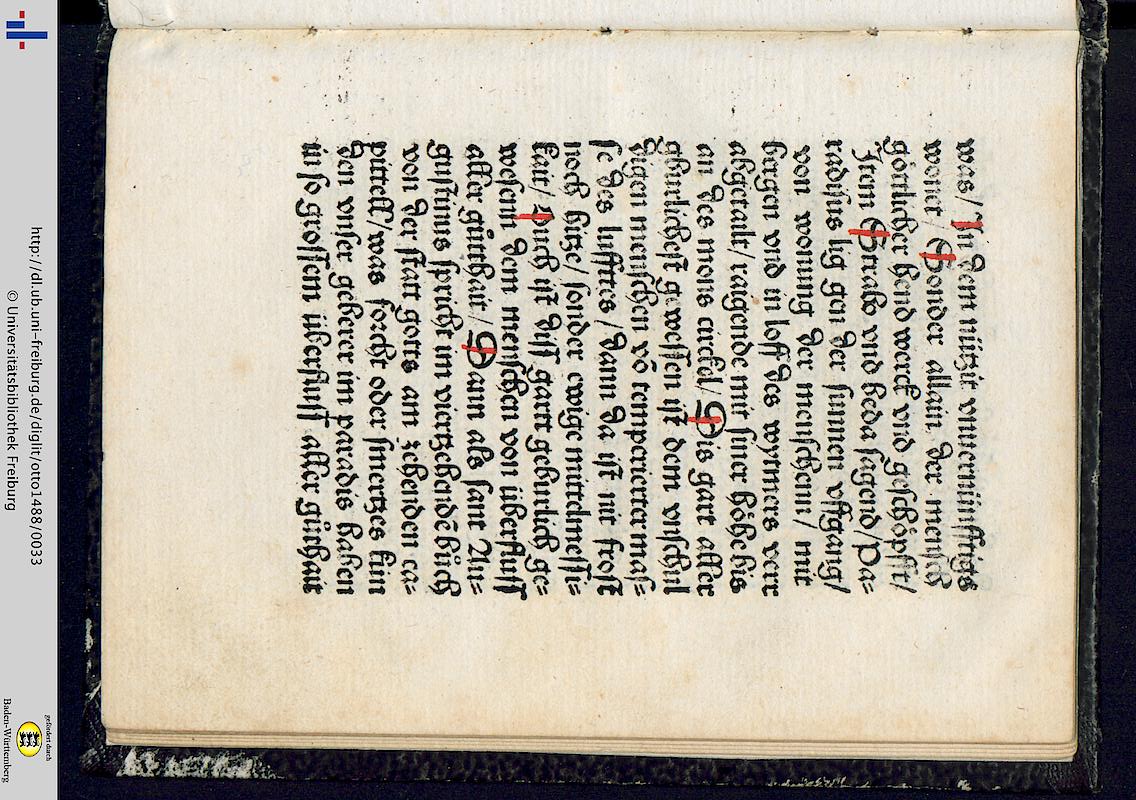 was/ In dem nützit vnuernünfftigs
woner/ Sonder allain der mensch
göttlicher hend werck vnd geschöpfft/
Item Strabo vnd beda sagend/ Pa=
radisus lig gen der sunnen vffgang/
von wonung der menschenn/ mit
bergen vnd in loff des wytmers verr
abgetailt/ raigende mit siner höhe bis
an des mons circkel/ Dis gart aller
gehulichest gewessen ist dem vnschul
digen menschen võ temperierter mas=
se des lufftes/ dann da ist nit frost
noch hitze/ sonder ewige mittelmessi=
kait/ Ouch ist diss gart gebürlich ge=
wesenn dem menschen von überfluss
aller gůtthait/ Dann als sant Au=
gustinus spricht im viertzehendẽ bůch
von der statt gotts am zehenden ca=
pittell/ was forcht oder smertzes kün
den vnser geberer im paradis haben
in so grossem überfluss aller gůthait
http://dl.ub.uni-freiburg.de/diglit/otto1488/0033
© Universitätsbibliothek Freiburg
gefördert durch
Baden-Württemberg